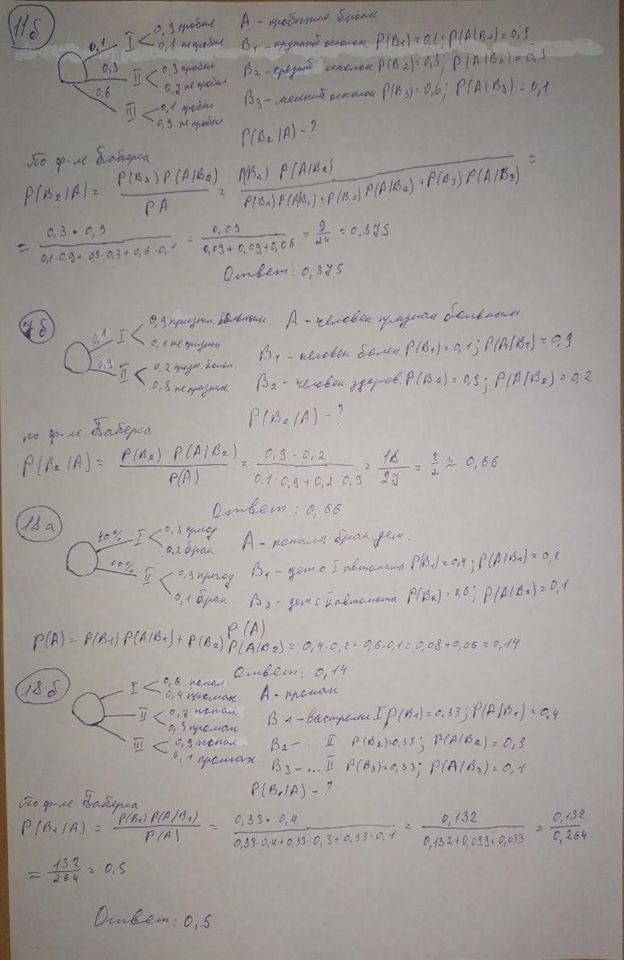 11б
0,1 I 0,9 пробил
0,1 не пробил
0,3 II 0,3 пробил
0,7 не пробил
0,6 III 0,1 пробил
0,9 не пробил
A - пробитие брони
B₁ - крупный осколок P(B₁)=0,1; P(A|B₁)=0,9
B₂ - средний осколок P(B₂)=0,3; P(A|B₂)=0,3
B₃ - мелкий осколок P(B₃)=0,6; P(A|B₃)=0,1
P(B₂|A) - ?
По ф-ле Байерса
P(B₂|A) = P(B₂) P(A|B₂) / PA = P(B₂) P(A|B₂) / P(B₁)P(A|B₁)+P(B₂)P(A|B₂)+P(B₃)P(A|B₃) =
= 0,3 · 0,9 / 0,1·0,9+0,3·0,3+0,6·0,1 = 0,09 / 0,09+0,09+0,06 = 9/24 = 0,375
Ответ: 0,375
7б
0,1 I 0,9 признан. больным
0,1 не признан
0,9 II 0,2 призн. больн.
0,8 не признан
A - человек признан больным.
B₁ - человек болен P(B₁)=0,1; P(A|B₁)=0,9
B₂ - человек здоров. P(B₂)=0,9; P(A|B₂)=0,2
P(B₂|A) - ?
по ф-ле Байерса
P(B₂|A) = P(B₂) P(A|B₂) / P(A) = 0,9 · 0,2 / 0,1·0,9+0,2·0,9 = 18/27 = 2/3 ≈ 0,66
Ответ: 0,66
18а
40% I 0,8 пригод
0,2 брак
60% II 0,9 пригод
0,1 брак
A - попалась брак дет.
B₁ - дет с I автомата P(B₁)=0,4; P(A|B₁)=0,2
B₂ - дет с II автомата P(B₂)=0,6; P(A|B₂)=0,1
P(A)
P(A) = P(B₁) P(A|B₁) + P(B₂) P(A|B₂) = 0,4·0,2+0,6·0,1=0,08+0,06=0,14
Ответ: 0,14
18б
I 0,6 попал.
0,4 промах
II 0,7 попал
0,3 промах
III 0,9 попал
0,1 промах
A - промах
B₁ - выстрелил I P(B₁)=0,33; P(A|B₁)=0,4
B₂ - ... II P(B₂)=0,33; P(A|B₂)=0,3
B₃ - ... II P(B₃)=0,33; P(A|B₃)=0,1
P(B₁|A) - ?
По ф-ле Байерса
P(B₁|A) = P(B₁) P(A|B₁) / P(A) = 0,33 · 0,4 / 0,33·0,4+0,33·0,3+0,33·0,1 = 0,132 / 0,132+0,099+0,033 = 0,132 / 0,264
= 132/264 = 0,5
Ответ: 0,5